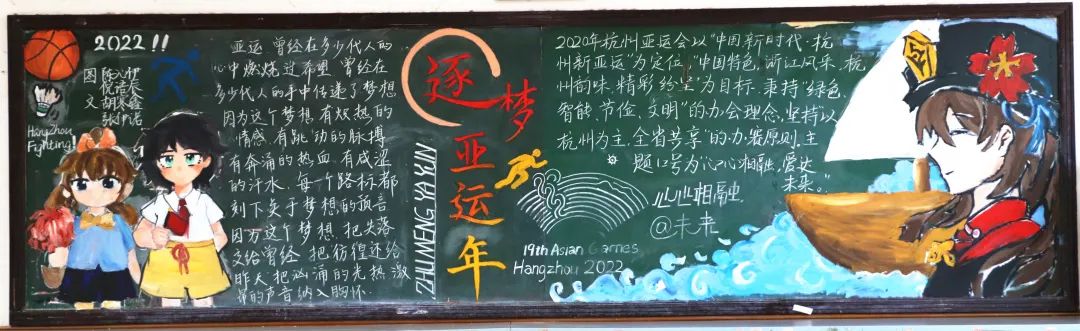 2022!!
图
文
Hangzhou
Fighting!
亚运,曾经在多少代人的
心中燃烧过希望,曾经在
多少代人的手中传递了梦想
因为这个梦想,有炽热的
情感,有跳动的脉搏
有奔涌的热血,有咸涩
的汗水,每一个路标都
刻下关于梦想的预言
因为这个梦想,把失落
交给曾经,把彷徨还给
昨天,把汹涌的光热,激
昂的声音纳入胸怀.
逐梦
亚运年
ZHUMENG YA YUN NIAN
2020年杭州亚运会以“中国新时代·杭
州新亚运”为定位,“中国特色,浙江风采,杭
州韵味,精彩纷呈”为目标,秉持“绿色,
智能,节俭,文明”的办会理念,坚持“以
杭州为主,全省共享”的办赛原则,主
题口号为“心心相融,爱达
未来。”
心心相融,
@未来
19th Asian Games
Hangzhou 2022